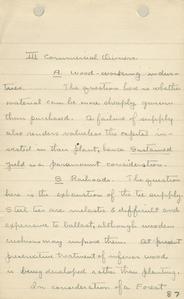 III Commercial Owners.
A. Wood-working indus-
tries. The question here is whether
material can be more cheaply grown
than purchased. A failure of supply
also renders valueless the capital in-
vested in their plant, thus Sustained
yield is a paramount consideration.
B Railroads. The question
here is the exhaustion of the tie supply
Steel ties are inelastic & difficult and
expensive to ballast, although modern
cushions may improve them. At present
preservative treatment of inferior wood
is being developed rather than planting.
In consideration of a Forest
87